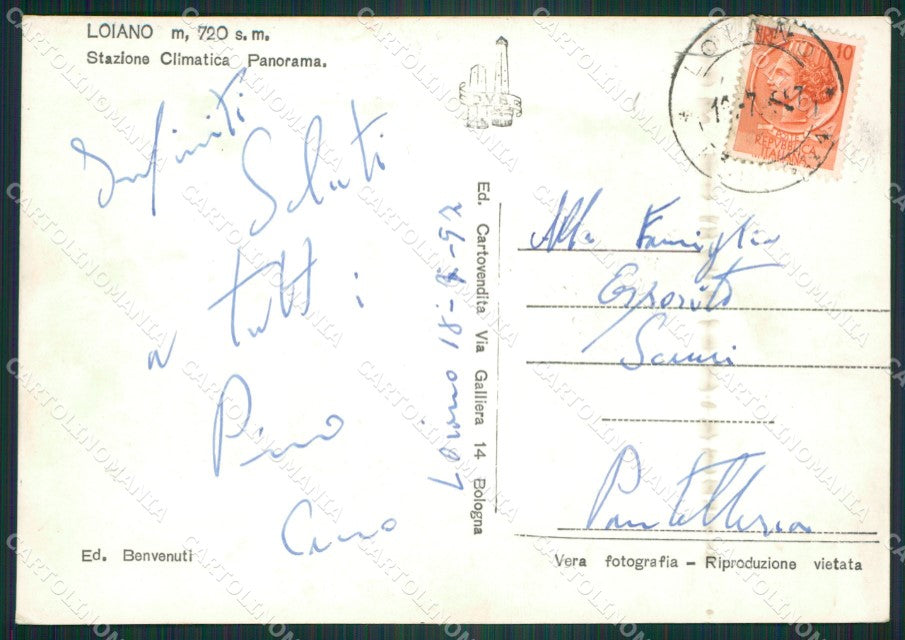 LOIANO m, 720 s. m.
Stazione Climatica Panorama.
Infiniti
Saluti
a tutti
Pino
Loiano 18-7-57
Ed. Cartovendita Via Galliera 14 Bologna
REPUBBLICA
ITALIANA
10
Alla Famiglia
Esposito
Pantelleria
Ed. Benvenuti
Vera fotografia - Riproduzione vietata
CARTOLINOMANIA